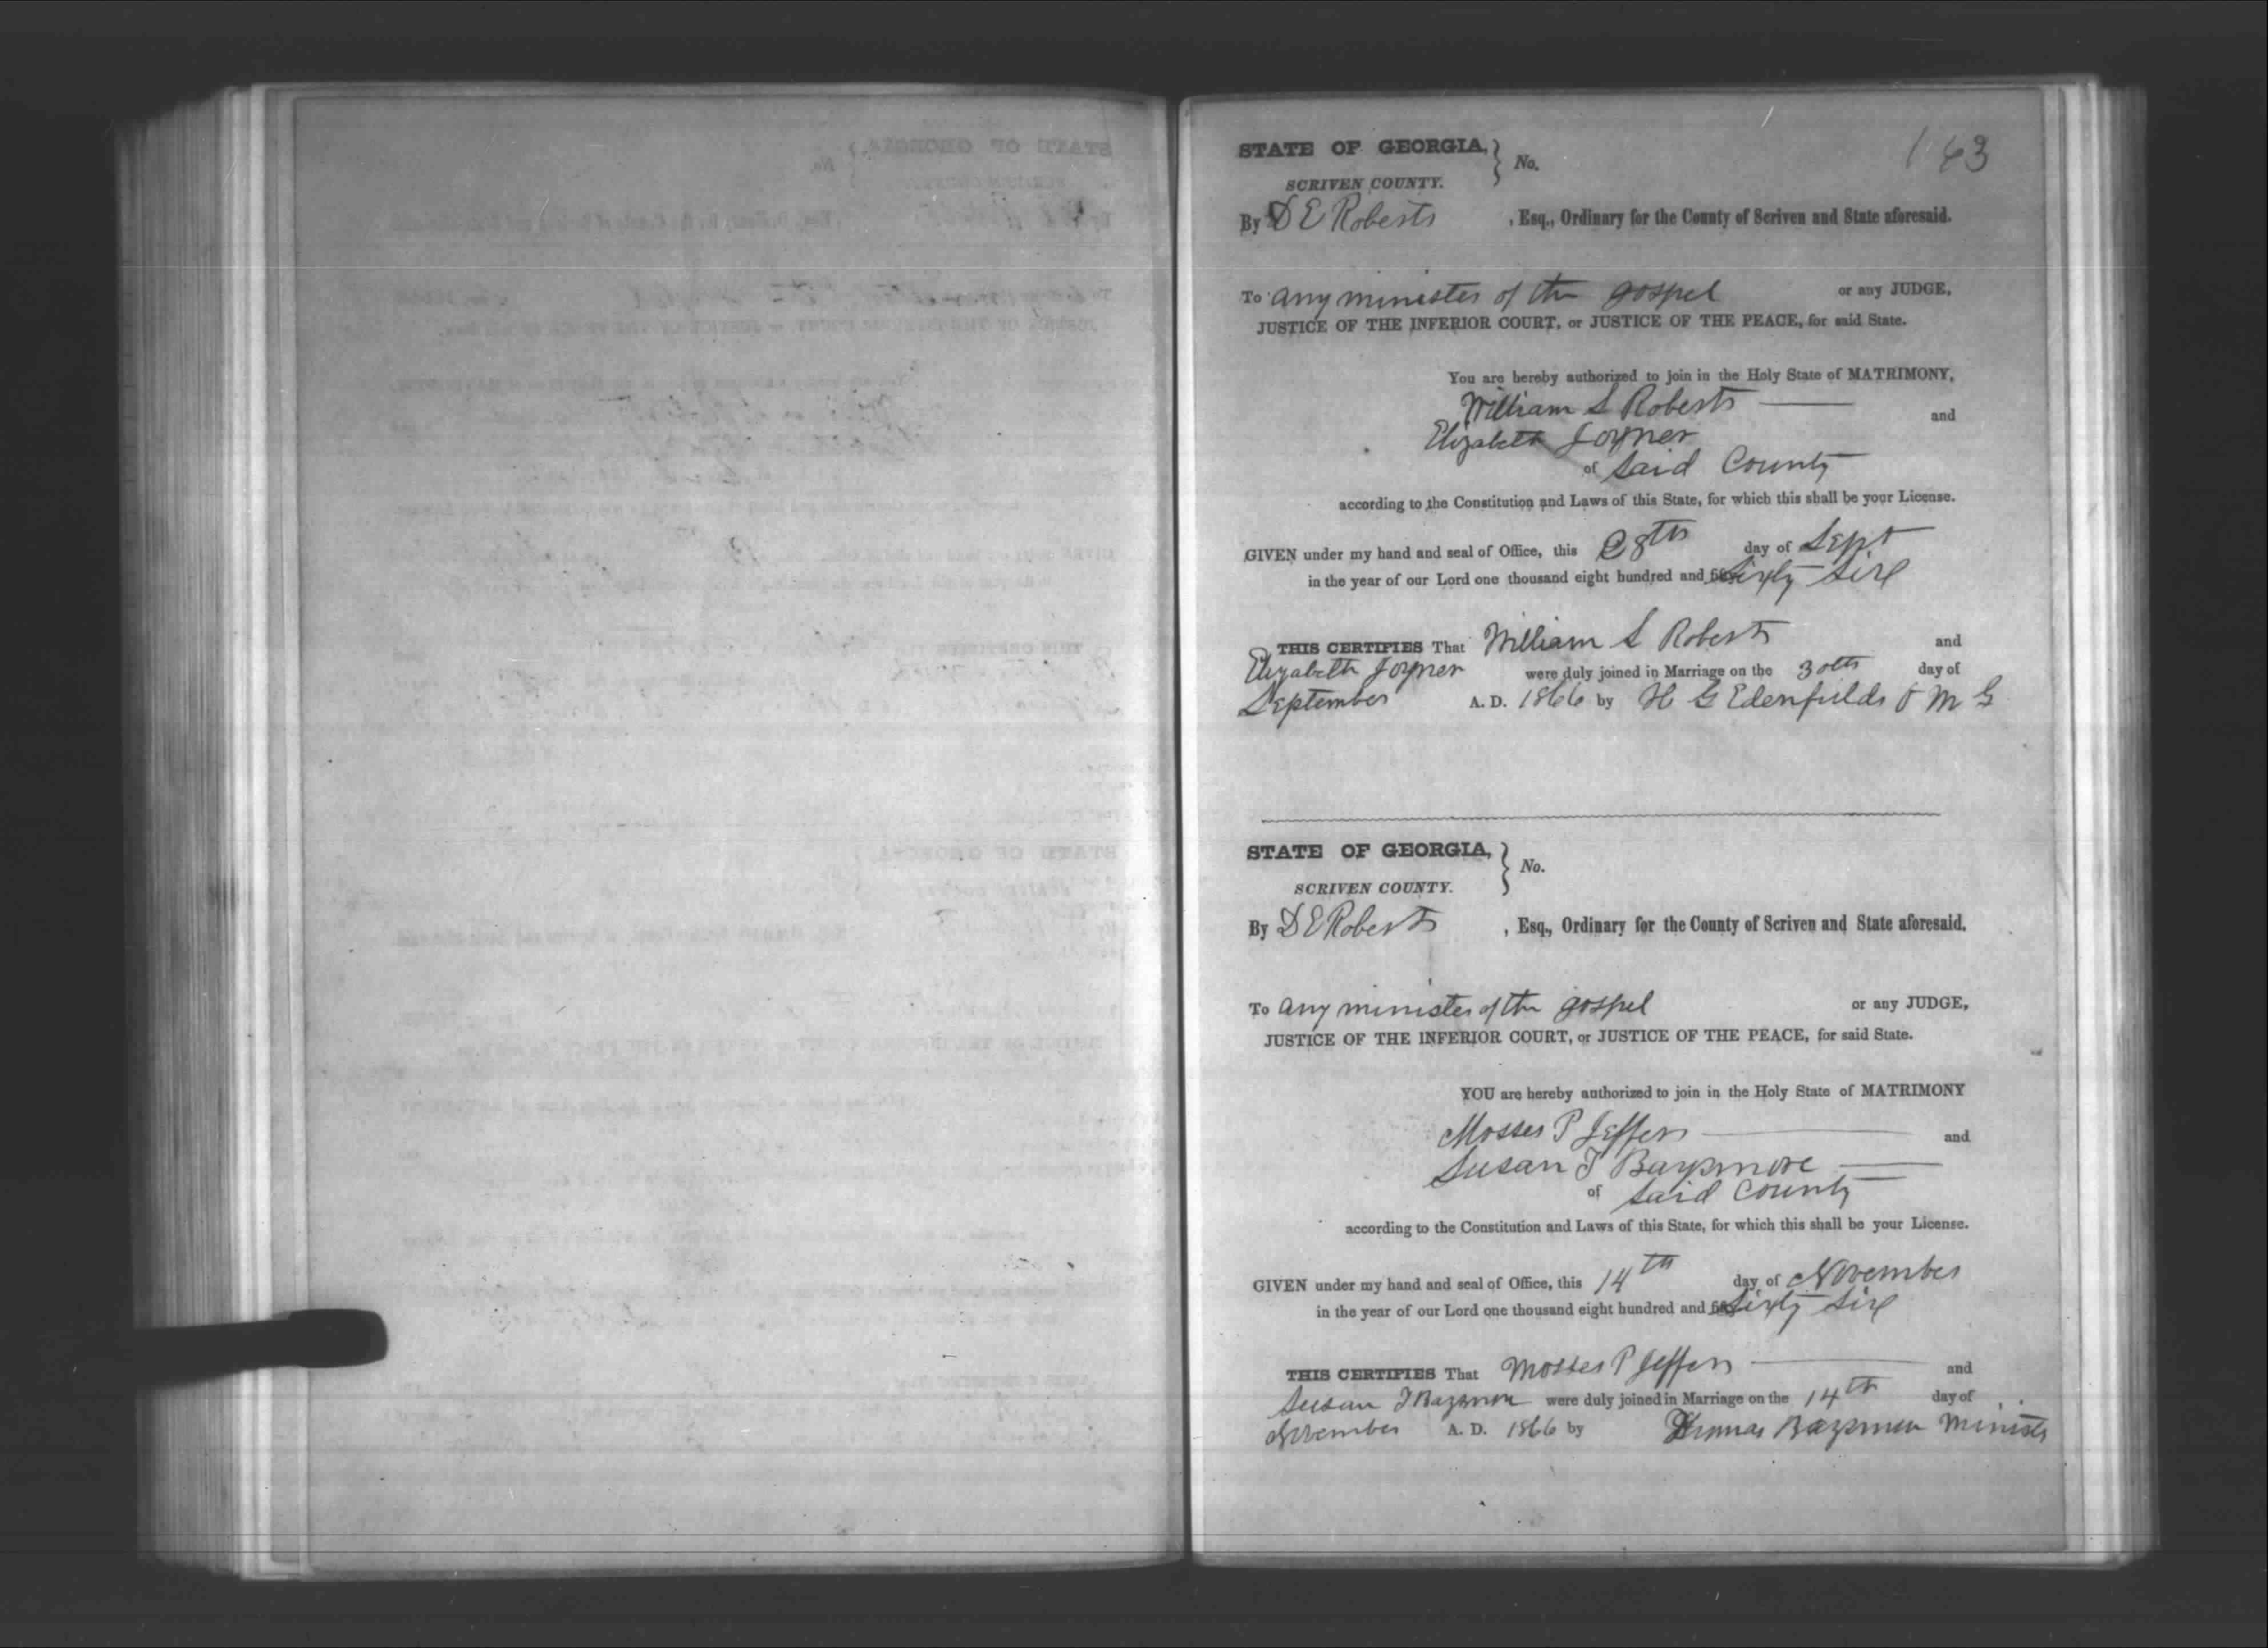 163
STATE OF GEORGIA, } No.
SCRIVEN COUNTY.
By D E Roberts , Esq., Ordinary for the County of Scriven and State aforesaid.
To any minister of the gospel or any JUDGE,
JUSTICE OF THE INFERIOR COURT, or JUSTICE OF THE PEACE, for said State.
You are hereby authorized to join in the Holy State of MATRIMONY,
William S Roberts and
Elizabeth Joyner
of Said County
according to the Constitution and Laws of this State, for which this shall be your License.
GIVEN under my hand and seal of Office, this 28th day of Sept
in the year of our Lord one thousand eight hundred and Sixty Six
THIS CERTIFIES That William S Roberts and
Elizabeth Joyner were duly joined in Marriage on the 30th day of
September A. D. 1866 by H G Edenfields M G
STATE OF GEORGIA, } No.
SCRIVEN COUNTY.
By D E Roberts , Esq., Ordinary for the County of Scriven and State aforesaid.
To any minister of the gospel or any JUDGE,
JUSTICE OF THE INFERIOR COURT, or JUSTICE OF THE PEACE, for said State.
YOU are hereby authorized to join in the Holy State of MATRIMONY
Mosses P Jeffers and
Susan T Bazemore
of Said County
according to the Constitution and Laws of this State, for which this shall be your License.
GIVEN under my hand and seal of Office, this 14th day of November
in the year of our Lord one thousand eight hundred and Sixty Six
THIS CERTIFIES That Mosses P Jeffers and
Susan T Bazemore were duly joined in Marriage on the 14th day of
November A. D. 1866 by Thomas Bazemore Minister